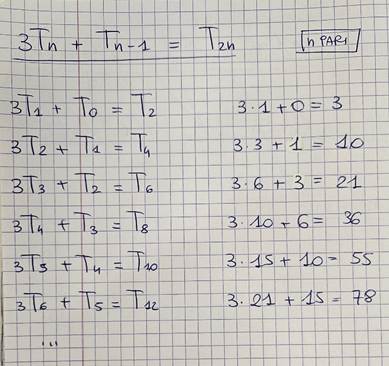 3Tn + Tn-1 = T2n n PARI
3T1 + T0 = T2 3·1+0 = 3
3T2 + T1 = T4 3·3+1 = 10
3T3 + T2 = T6 3·6+3 = 21
3T4 + T3 = T8 3·10+6 = 36
3T5 + T4 = T10 3·15+10 = 55
3T6 + T5 = T12 3·21+15 = 78
...